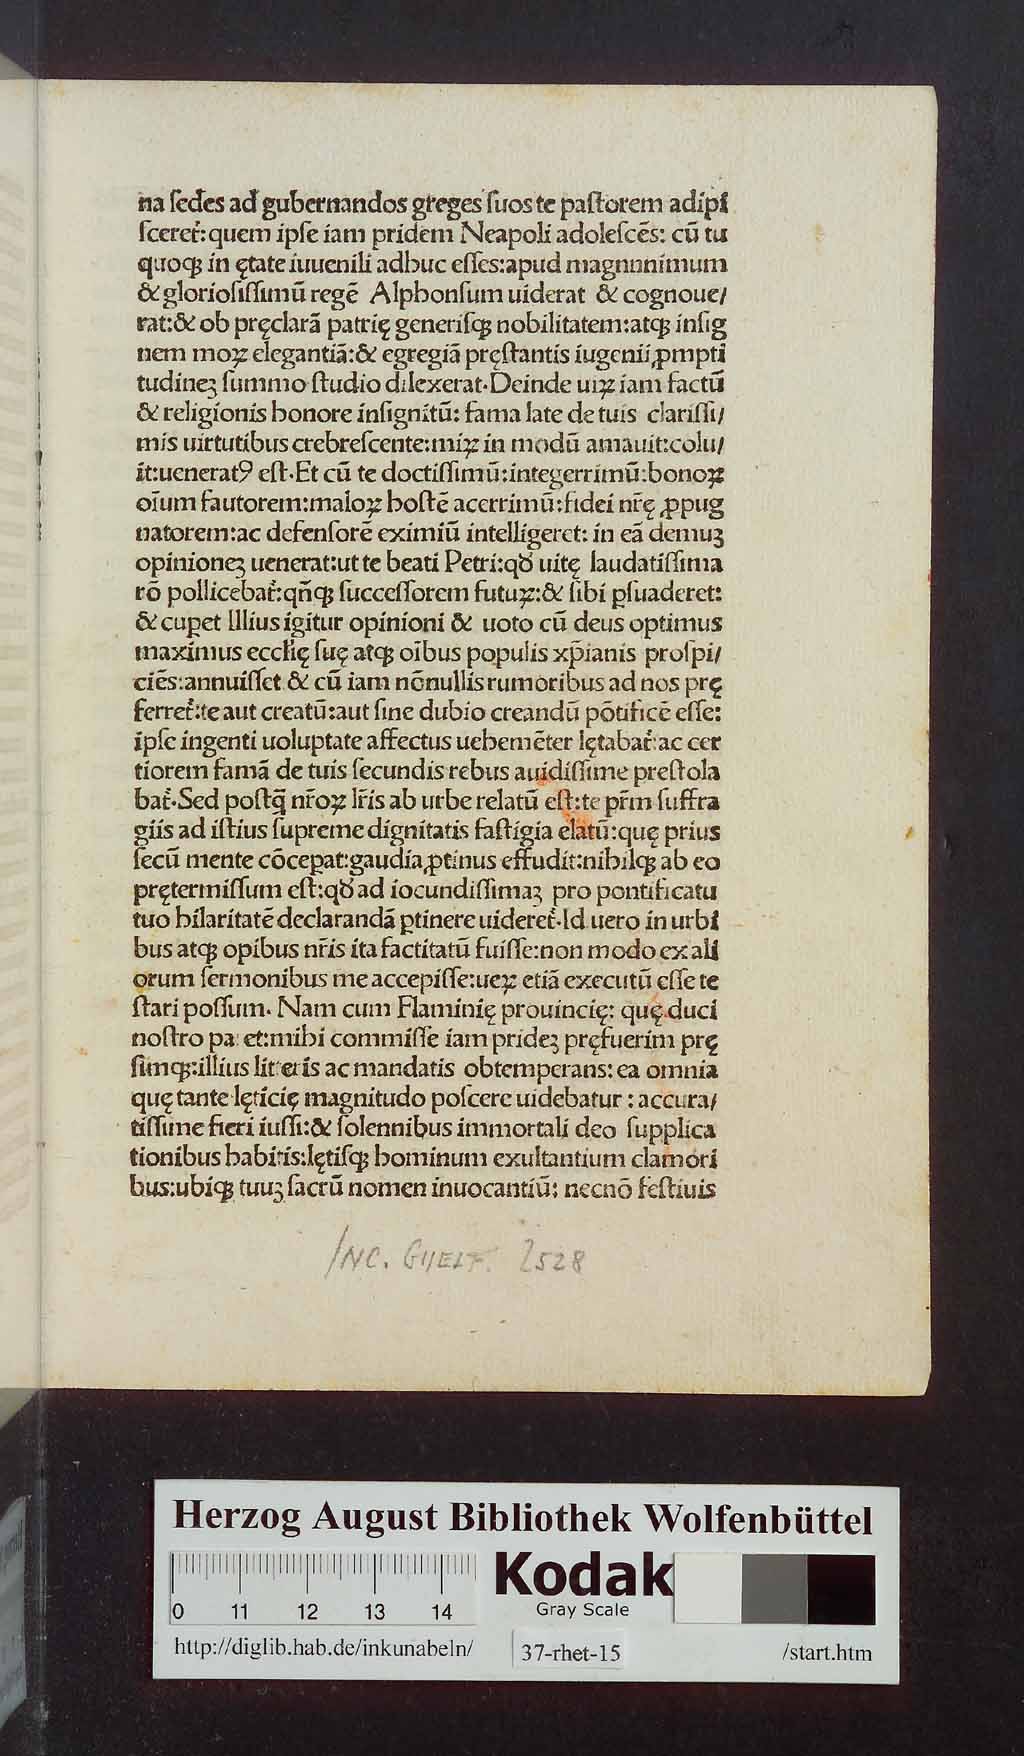 na sedes ad gubernandos greges suos te pastorem adipi
sceret᷑: quem ipse iam pridem Neapoli adolescēs: cū tu
quoqꝫ in ętate iuuenili adhuc esses: apud magnnnimum
& gloriosissimū regē Alphonsum uiderat & cognoue/
rat: & ob pręclarā patrię generisqꝫ nobilitatem: atqꝫ insig
nem moꝝ elegantiā: & egregiā pręstantis iugenii ꝓmpti
tudineꝫ summo studio dilexerat. Deinde uiꝝ iam factū
& religionis honore insignitū: fama late de tuis clarissi/
mis uirtutibus crebrescente: miꝝ in modū amauit: colu/
it: ueneratꝰ est. Et cū te doctissimū: integerrimū: bonoꝝ
oīum fautorem: maloꝝ hostē acerrimū: fidei nr̄ę ꝓpug
natorem: ac defensorē eximiū intelligeret: in eā demuꝫ
opinioneꝫ uenerat: ut te beati Petri: qđ uitę laudatissima
rō pollicebat᷑: qn̄qꝫ successorem futuꝝ: & sibi ꝑsuaderet:
& cuꝑet Illius igitur opinioni & uoto cū deus optimus
maximus eccłię suę atqꝫ oībus populis xp̄ianis prospi/
ciēs: annuisset & cū iam nōnullis rumoribus ad nos prę
ferret᷑: te aut creatū: aut sine dubio creandū pōtificē esse:
ipse ingenti uoluptate affectus uehemēter lętabat᷑: ac cer
tiorem famā de tuis secundis rebus auidissime prestola
bat᷑. Sed postꝗ̄ nr̄oꝝ lr̄is ab urbe relatū est: te pr̄m suffra
giis ad istius supreme dignitatis fastigia elatū: quę prius
secū mente cōceꝑat: gaudia ꝓtinus effudit: nihilqꝫ ab eo
prętermissum est: qđ ad iocundissimaꝫ pro pontificatu
tuo hilaritatē declarandā ꝑtinere uideret᷑. Id uero in urbi
bus atqꝫ opibus nr̄is ita factitatū fuisse: non modo ex ali
orum sermonibus me accepisse: ueꝝ etiā executū esse te
stari possum. Nam cum Flaminię prouincię: quę duci
nostro pa et: mihi commisse iam prideꝫ pręfuerim prę
simqꝫ: illius litteris ac mandatis obtemperans: ea omnia
quę tante lęticię magnitudo poscere uidebatur: accura/
tissime fieri iussi: & solennibus immortali deo supplica
tionibus habitis: lętisqꝫ hominum exultantium clamori
bus: ubiqꝫ tuuꝫ sacrū nomen inuocantiū: necnō festiuis
INC. GUELF. 2528
Herzog August Bibliothek Wolfenbüttel
Kodak
Gray Scale
0 11 12 13 14
http://diglib.hab.de/inkunabeln/ 37-rhet-15 /start.htm